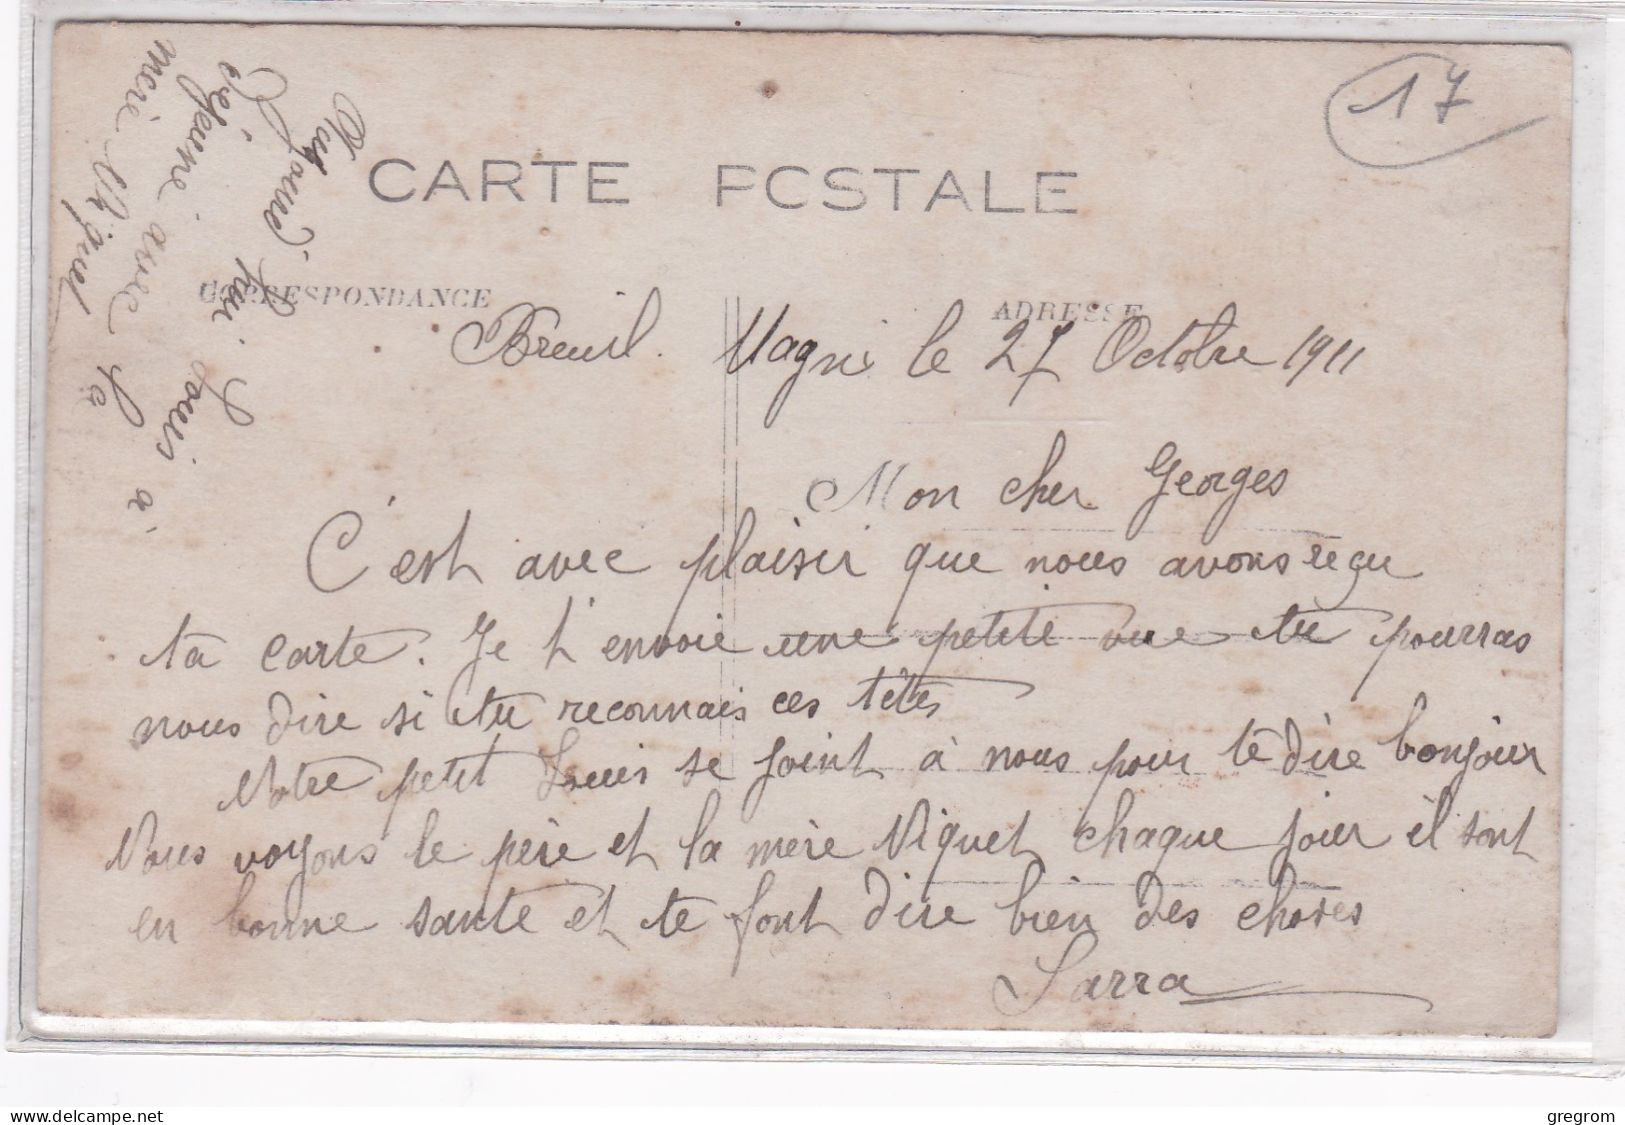 17
CARTE POSTALE
CORRESPONDANCE
ADRESSE
Breuil. Magné le 27 Octobre 1911
Mon cher Georges
C'est avec plaisir que nous avons reçu
ta carte. Je t'envoie une petite vue tu pourras
nous dire si tu reconnais ces têtes
Notre petit Louis se joint à nous pour te dire bonjour
Nous voyons le père et la mère Viguet chaque jour il sont
en bonne santé et te font dire bien des choses
Sarra
Aujourd'hui Louis a
déjeuné avec la
mère Viguet
www.delcampe.net
gregrom